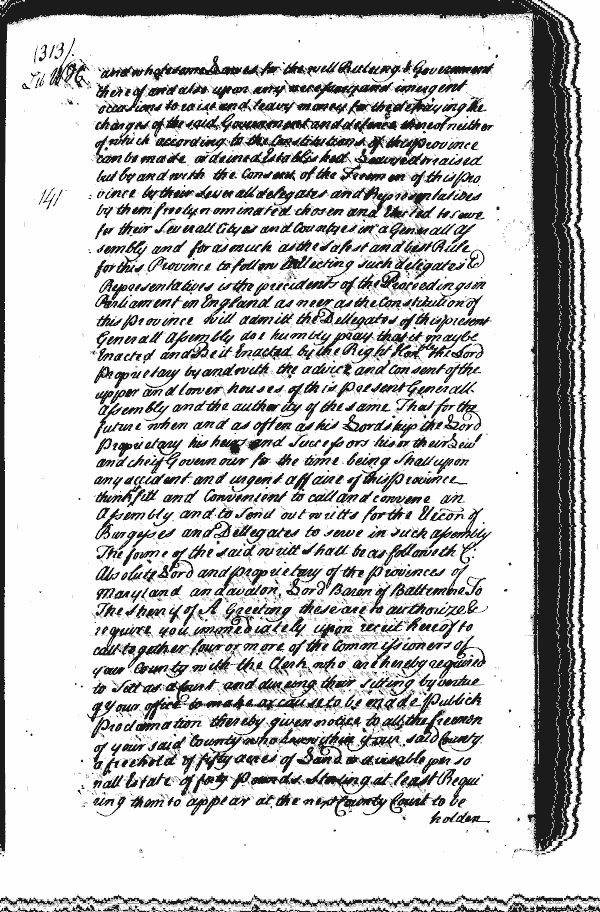 (313).
Lib W H &C
and wholesome Lawes for the well Ruleing & Government
thereof and also upon any necessary and emergent
occasions to raise and leavy money for the defraying the
charges of the said Government and defence thereof neither
of which according to the Constitutions of this province
can be made ordeined Established Leavyed or raised
but by and with the Consent of the Freemen of this pro
141
vince by their Severall delegates and Representatives
by them freely nominated chosen and Elected to serve
for their Severall Cityes and Countyes in a Generall As
sembly and forasmuch as the safest and best Rule
for this Province to follow in Electing such delegates &
Representatives is the precidents of the Proceedings in
Parliament in England as neer as the Constitution of
this province will admitt the Dellegates of this present
Generall Assembly doe humbly pray that it maybe
Enacted and Be it Enacted by the Right Honble the Lord
Proprietary by and with the advice and Consent of the
upper and lower houses of this present Generall
Assembly and the authority of the same That for the
future when and as often as his Lordship the Lord
Proprietary his heirs and Successors his or their Leiut
and cheif Governour for the time being Shall upon
any accident and urgent affaire of this Province
think fitt and Convenient to call and convene an
Assembly and to send out writts for the Elecon of
Burgesses and Dellegates to serve in such assembly
The forme of the said writt shall be as followeth &c.
Absolute Lord and Proprietary of the Provinces of
Maryland and avalon, Lord Baron of Baltemore To
The sheriff of A Greeting these are to authorize &
require you immediately upon receit hereof to
call together four or more of the Commissioners of
your County with the Clerk who are hereby required
to Sitt as a Court and dureing their sitting by vertue
of your office to make or cause to be made Publick
Proclamation thereby giveing notice to all the freemen
of your said County who have within your said County
a freehold of fifty acres of Land or a visable perso
nall Estate of forty pounds Sterling at least Requi
ring them to appear at the next County Court to be
holden